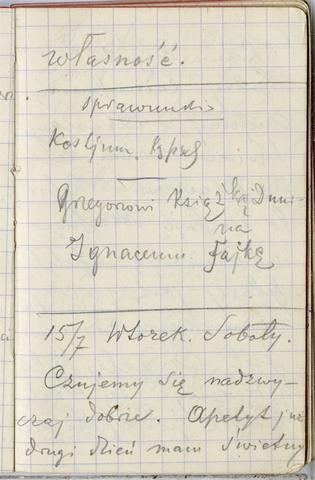 własność.
sprawunki
Kostjum,
Grzegorzowi Książkę Duni-
na
Ignacemu Fajkę
15/7 Wtorek. Soboty.
Czujemy się nadzwy-
czaj dobrze. Apetyt już
drugi dzień mam świetny